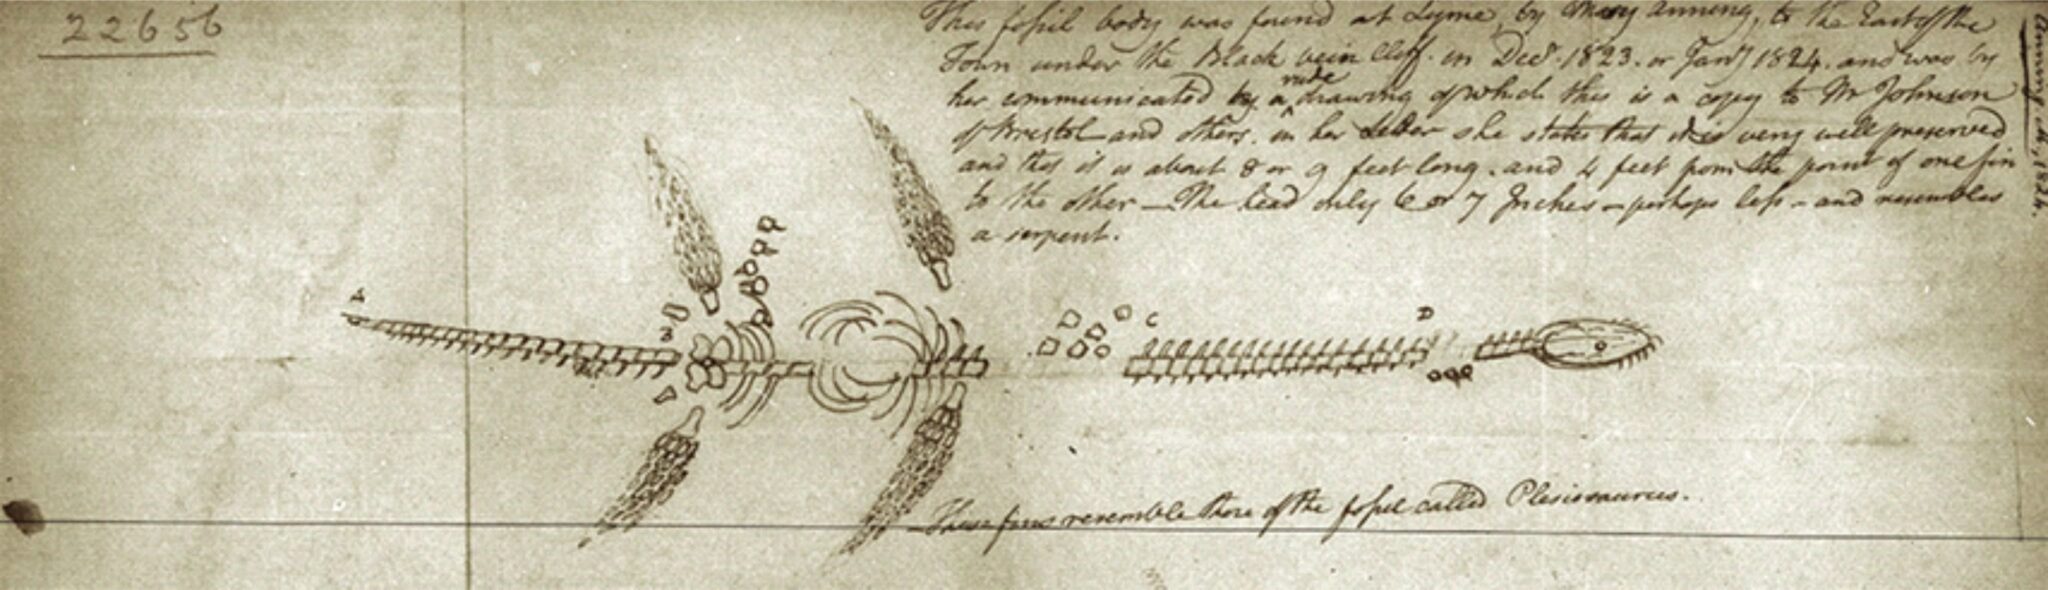 22656
This fossil body was found at Lyme, by Mary Anning, to the East of the
Town under the Black vein Cliff. in Decr. 1823. or Jany 1824. and was by
her communicated by a rude drawing of which this is a copy to Mr Johnson
of Bristol and others. in her Letter she states that it is very well preserved
and that it is about 8 or 9 feet long. and 4 feet from the point of one fin
to the other — The head only 6 or 7 Inches – perhaps less – and resembles
a serpent.
1824.
A
B
C
D
These fins resemble those of the fossil called Plesiosaurus.